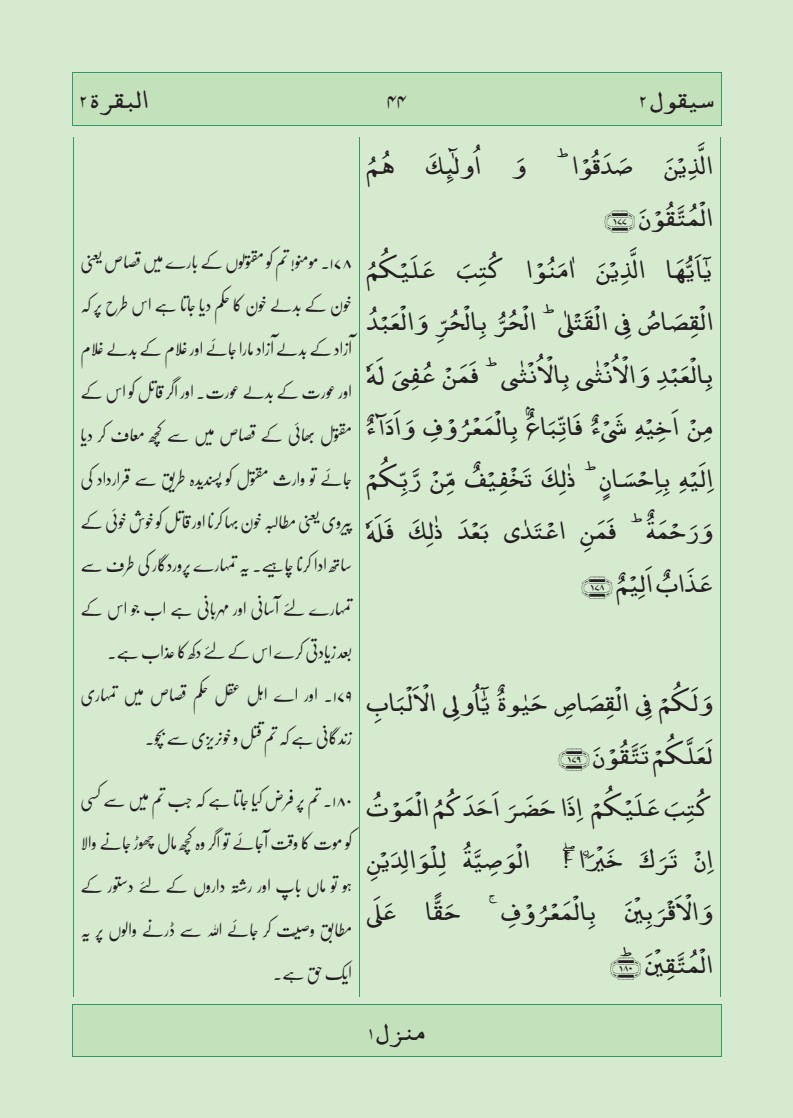 سیقول ۲
۴۴
البقرة ۲
الَّذِیۡنَ صَدَقُوۡا ؕ وَ اُولٰٓئِکَ ہُمُ
الۡمُتَّقُوۡنَ ﴿۱۷۷﴾
یٰۤاَیُّہَا الَّذِیۡنَ اٰمَنُوۡا کُتِبَ عَلَیۡکُمُ
الۡقِصَاصُ فِی الۡقَتۡلٰی ؕ اَلۡحُرُّ بِالۡحُرِّ وَ الۡعَبۡدُ
بِالۡعَبۡدِ وَ الۡاُنۡثٰی بِالۡاُنۡثٰی ؕ فَمَنۡ عُفِیَ لَہٗ
مِنۡ اَخِیۡہِ شَیۡءٌ فَاتِّبَاعٌۢ بِالۡمَعۡرُوۡفِ وَ اَدَآءٌ
اِلَیۡہِ بِاِحۡسَانٍ ؕ ذٰلِکَ تَخۡفِیۡفٌ مِّنۡ رَّبِّکُمۡ
وَ رَحۡمَۃٌ ؕ فَمَنِ اعۡتَدٰی بَعۡدَ ذٰلِکَ فَلَہٗ
عَذَابٌ اَلِیۡمٌ ﴿۱۷۸﴾
وَ لَکُمۡ فِی الۡقِصَاصِ حَیٰوۃٌ یّٰۤاُولِی الۡاَلۡبَابِ
لَعَلَّکُمۡ تَتَّقُوۡنَ ﴿۱۷۹﴾
کُتِبَ عَلَیۡکُمۡ اِذَا حَضَرَ اَحَدَکُمُ الۡمَوۡتُ
اِنۡ تَرَکَ خَیۡرَۨا ۚۖ الۡوَصِیَّۃُ لِلۡوَالِدَیۡنِ
وَ الۡاَقۡرَبِیۡنَ بِالۡمَعۡرُوۡفِ ۚ حَقًّا عَلَی
الۡمُتَّقِیۡنَ ﴿۱۸۰﴾ؕ
۱۷۸۔ مومنو! تم کو مقتولوں کے بارے میں قصاص یعنی
خون کے بدلے خون کا حکم دیا جاتا ہے اس طرح پر کہ
آزاد کے بدلے آزاد مارا جائے اور غلام کے بدلے غلام
اور عورت کے بدلے عورت۔ اور اگر قاتل کو اس کے
مقتول بھائی کے قصاص میں سے کچھ معاف کر دیا
جائے تو وارث مقتول کو پسندیدہ طریق سے قرارداد کی
پیروی یعنی مطالبہ خون بہا کرنا اور قاتل کو خوش خوئی کے
ساتھ ادا کرنا چاہیے۔ یہ تمہارے پروردگار کی طرف سے
تمہارے لئے آسانی اور مہربانی ہے اب جو اس کے
بعد زیادتی کرے اس کے لئے دکھ کا عذاب ہے۔
۱۷۹۔ اور اے اہل عقل حکم قصاص میں تمہاری
زندگانی ہے کہ تم قتل و خونریزی سے بچو۔
۱۸۰۔ تم پر فرض کیا جاتا ہے کہ جب تم میں سے کسی
کو موت کا وقت آجائے تو اگر وہ کچھ مال چھوڑ جانے والا
ہو تو ماں باپ اور رشتہ داروں کے لئے دستور کے
مطابق وصیت کر جائے اللہ سے ڈرنے والوں پر یہ
ایک حق ہے۔
منزل ۱